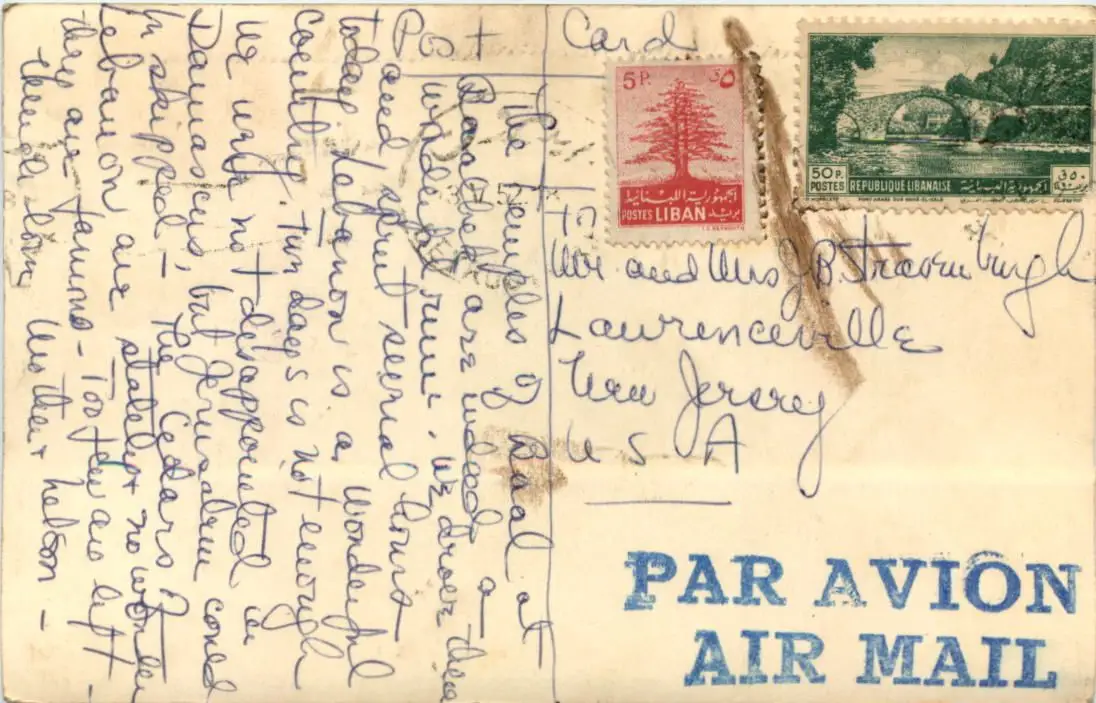 Post Card
5 P. ٥ ق
الجمهورية اللبنانية
POSTES LIBAN بريد
50 P. ٥٠ ق
POSTES REPUBLIQUE LIBANAISE الجمهورية اللبنانية بريد
The temples of Baal at
Baalbek are indeed a
wonderful ruin. We drove there
and spent several hours
today. Lebanon is a wonderful
Country. Two days is not enough
We were not disappointed in
Damascus, but Jerusalem could
be skipped - The Cedars of
Lebanon are stately & no wonder
they are famous - Too few are left -
Mother & Nelson -
To
Mr and Mrs J B Strasenburgh
Lawrenceville
New Jersey
U S A
PAR AVION
AIR MAIL